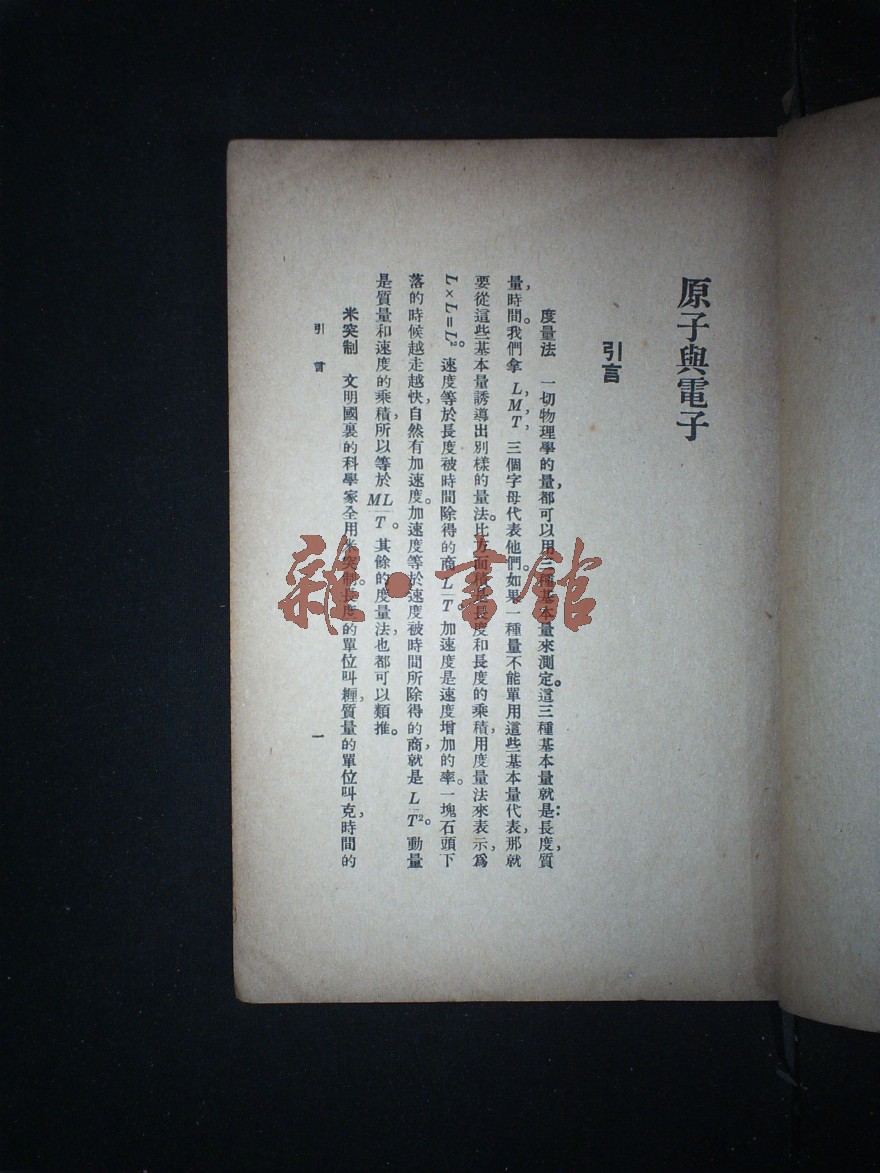 原子與電子
引言
度量法　一切物理學的量，都可以用三種基本量來測定。這三種基本量就是：長度，質
量，時間。我們拿 L, M, T, 三個字母代表他們。如果一種量不能單用這些基本量代表，那就
要從這些基本量誘導出別樣的量法。比方面積是長度和長度的乘積，用度量法來表示，爲
L×L=L²。速度等於長度被時間除得的商 L/T。加速度是速度增加的率。一塊石頭下
落的時候越走越快，自然有加速度。加速度等於速度被時間所除得的商，就是 L/T²。動量
是質量和速度的乘積，所以等於 ML/T。其餘的度量法，也都可以類推。
米突制　文明國裏的科學家全用米突制。長度的單位叫糎，質量的單位叫克，時間的
引言
一
雜·書館